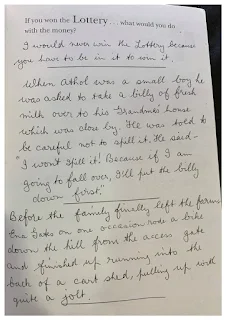 If you won the Lottery . . . what would you do
with the money?
I would never win the Lottery because
you have to be in it to win it.
When Athol was a small boy he
was asked to take a billy of fresh
milk over to his Grandma's house
which was close by. He was told to
be careful not to spill it. He said—
"I won't spill it! Because if I am
going to fall over, I'll put the billy
down first."
Before the family finally left the farm
Ena Gates on one occasion rode a bike
down the hill from the access gate
and finished up running into the
back of a cart shed, pulling up with
quite a jolt.